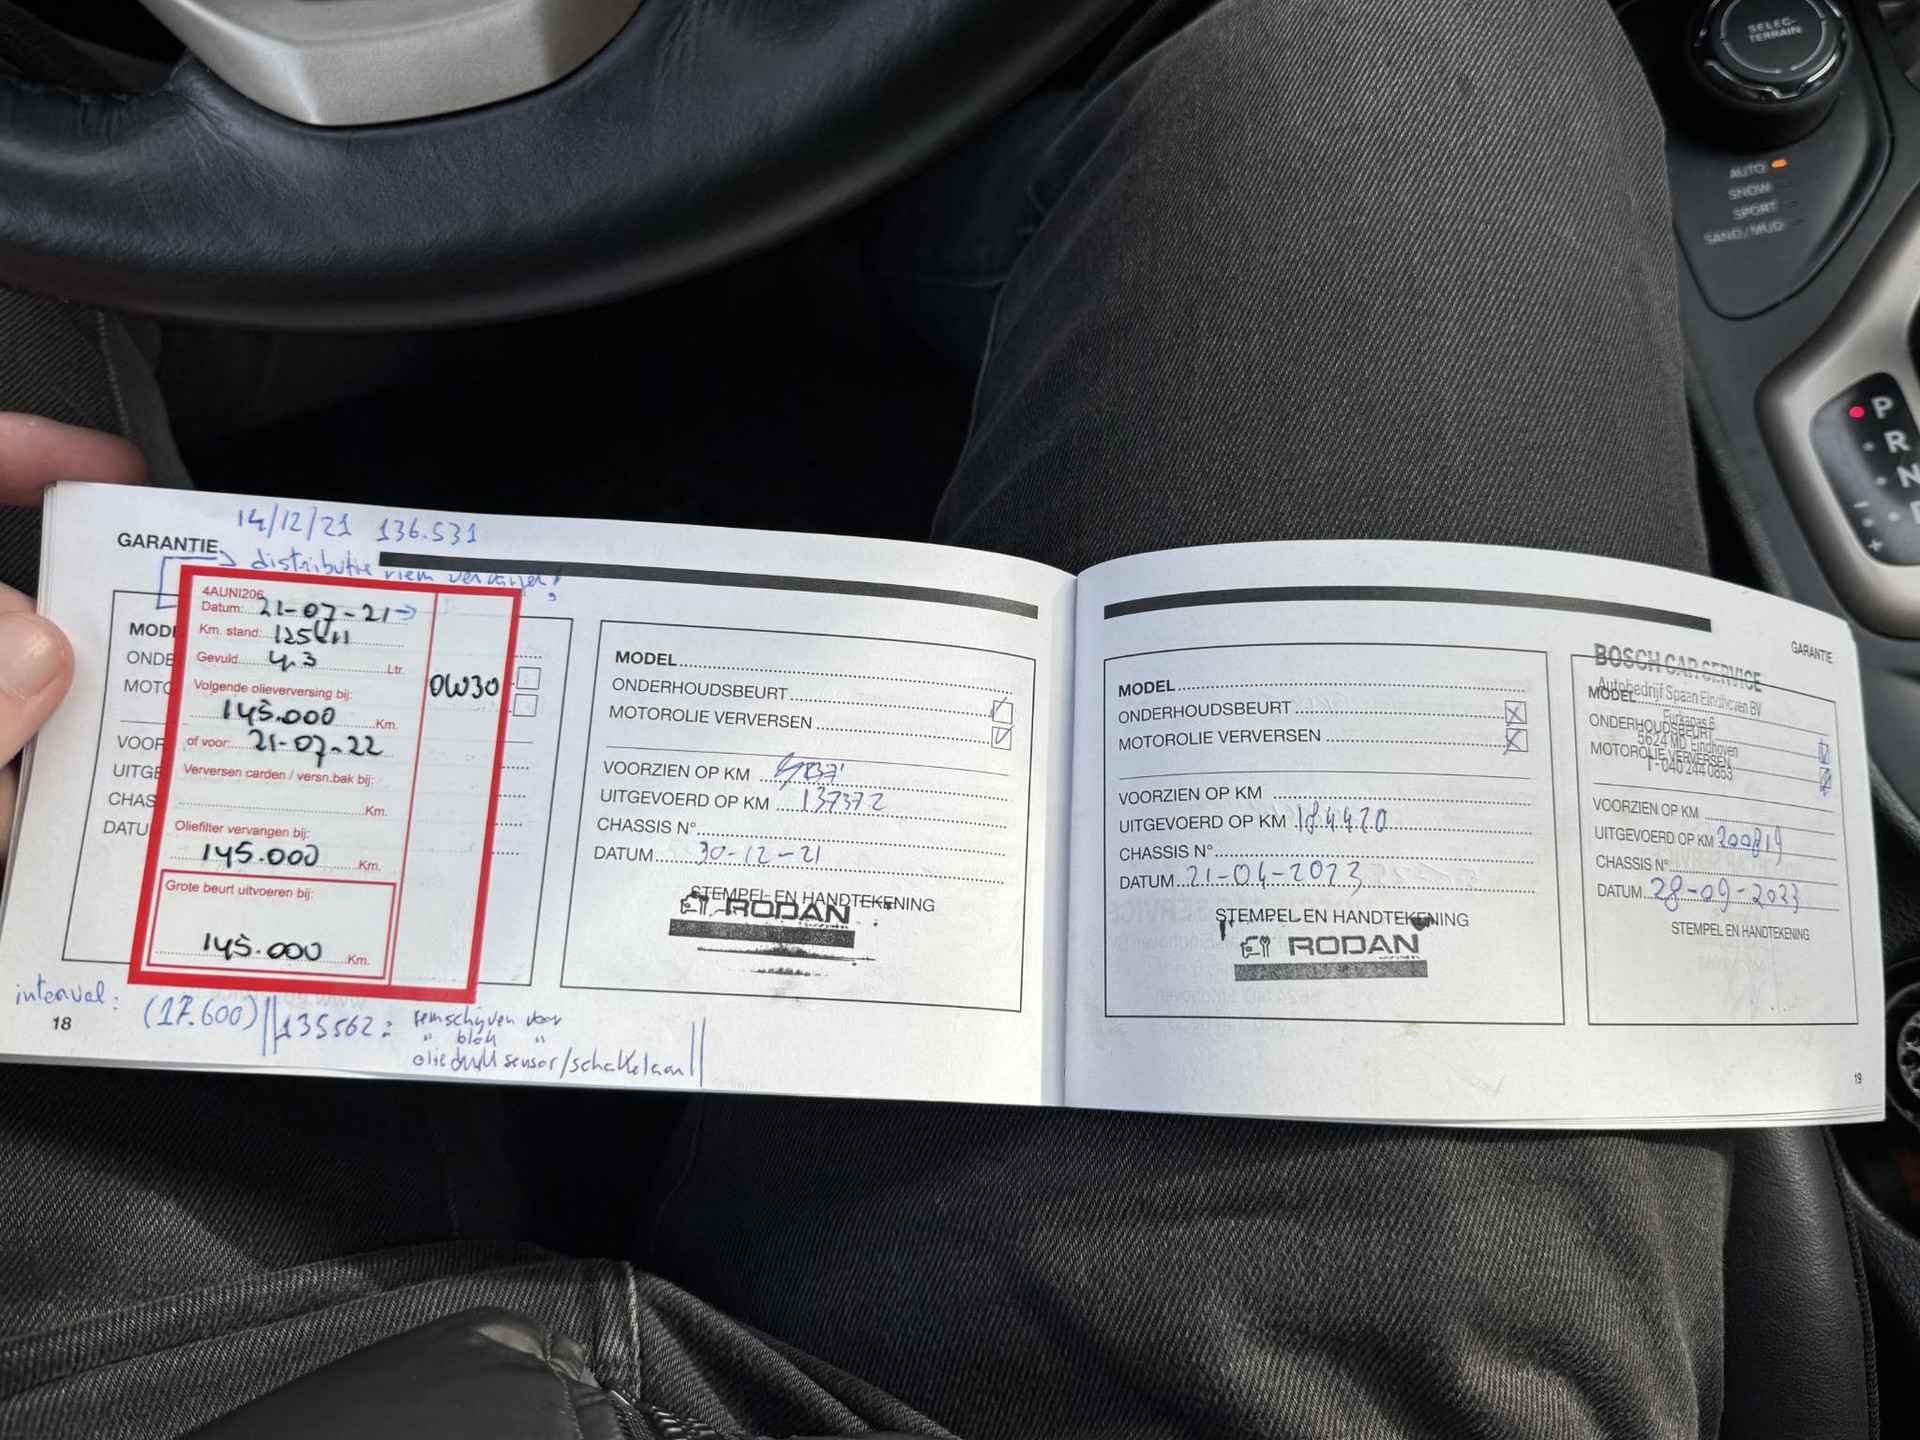 SELEC-
TERRAIN
AUTO
SNOW
SPORT
SAND/MUD
P
R
N
14/12/21 136.531
GARANTIE
distributie riem
4AUNI206
Datum: 21-07-21 →
Km. stand:
Gevuld 4.3 Ltr.
0W30
Volgende olieverversing bij:
145.000 Km.
of voor: 21-07-22
Verversen carden / versn.bak bij:
Km.
Oliefilter vervangen bij:
145.000 Km.
Grote beurt uitvoeren bij:
145.000 Km.
MOD
ONDE
MOTO
VOOR
UITGE
CHAS
DATU
interval: (17.600) || 135562: remschijven voor
" blok "
oliedruk sensor/schakelaar ||
18
MODEL
ONDERHOUDSBEURT
MOTOROLIE VERVERSEN
VOORZIEN OP KM
UITGEVOERD OP KM 137372
CHASSIS N°
DATUM 30-12-21
STEMPEL EN HANDTEKENING
RODAN
MODEL
ONDERHOUDSBEURT
MOTOROLIE VERVERSEN
VOORZIEN OP KM
UITGEVOERD OP KM 184420
CHASSIS N°
DATUM 21-04-2023
STEMPEL EN HANDTEKENING
RODAN
GARANTIE
BOSCH CAR SERVICE
Autobedrijf Spaan Eindhoven BV
MODEL
Furkapas 6
ONDERHOUDSBEURT
5624 MD Eindhoven
MOTOROLIE VERVERSEN
T - 040 244 0853
VOORZIEN OP KM
UITGEVOERD OP KM 200819
CHASSIS N°
DATUM 28-09-2023
STEMPEL EN HANDTEKENING
19